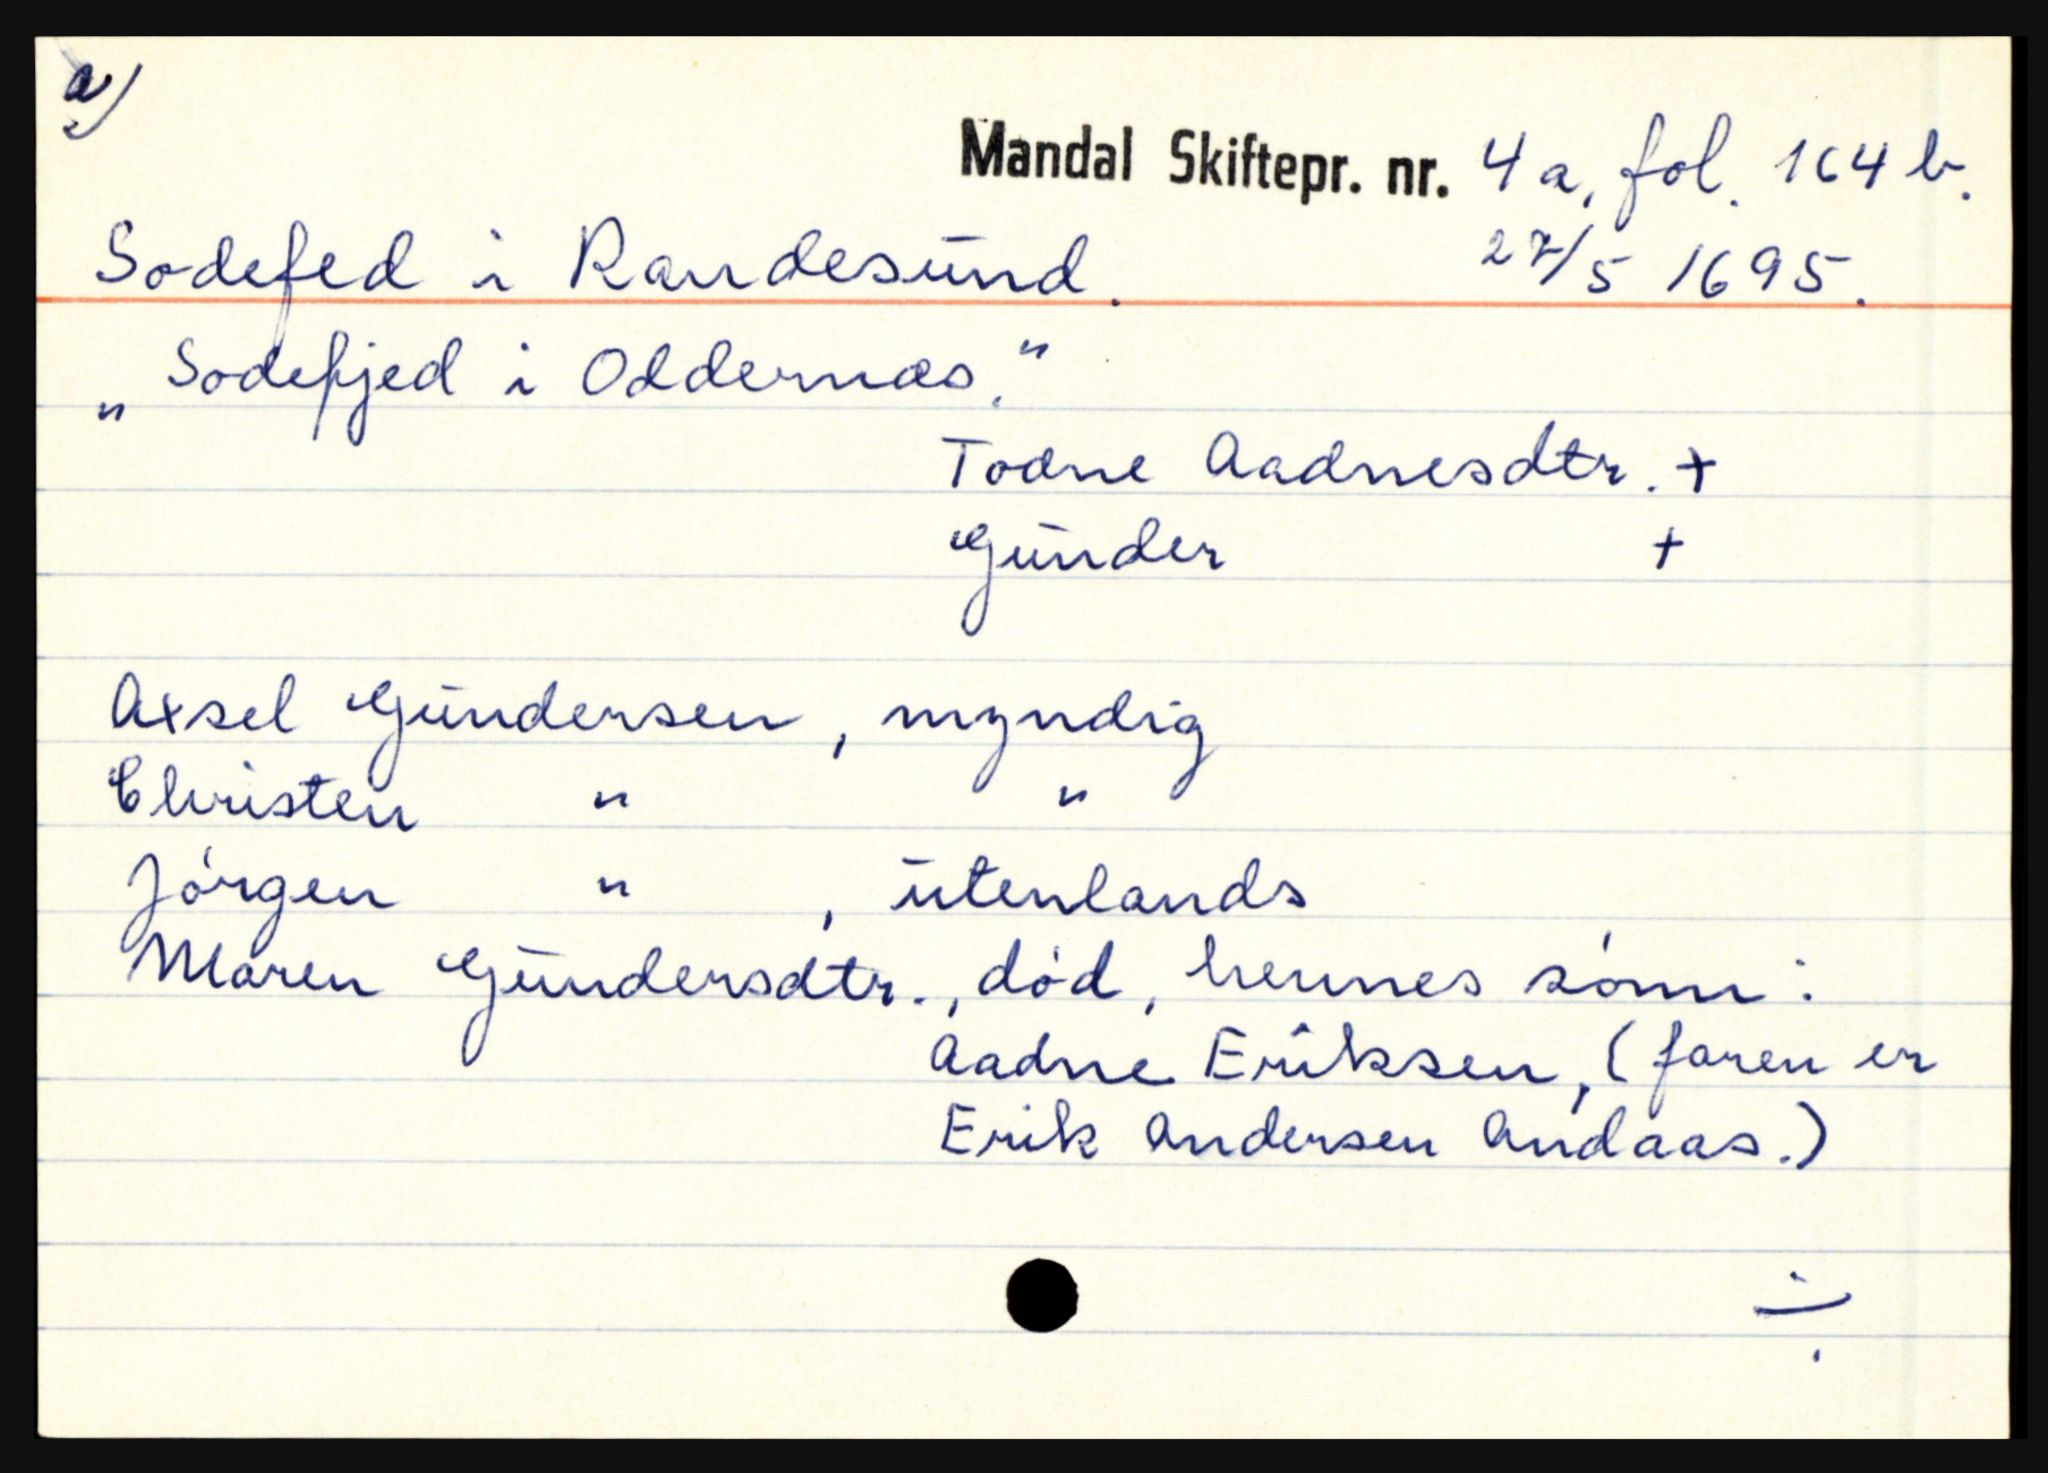 a)
Mandal Skiftepr. nr. 4a, fol. 164 b.
Sodefed i Randesund. 27/5 1695.
„Sodefjed i Oddernæs."
Todne Aadnesdtr. +
Gunder +
Axsel Gundersen, myndig
Christen " "
Jörgen " , utenlands
Maren Gundersdtr., död, hennes sönn:
Aadne Eriksen, (faren er
Erik Andersen Andaas.)